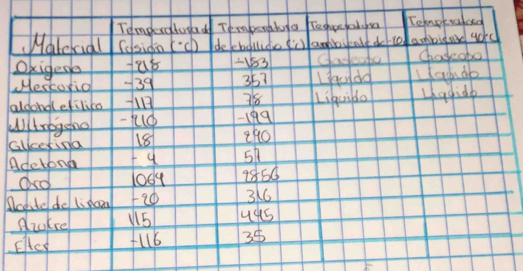 Material Temperatura d fusión (°c) Temperatura de ebullició (°c) Temperatura ambiente de -10 Temperatura ambiente 40°C
Oxígeno -218 -183 Gaseoso Gaseoso
Mercurio -39 357 Líquido Líquido
alcohol etílico -117 78 Líquido Líquido
Nitrógeno -210 -199
Glicerina 18 290
Acetona -9 57
Oro 1064 2856
Aceite de linaza -20 316
Azufre 115 445
Eter -116 35